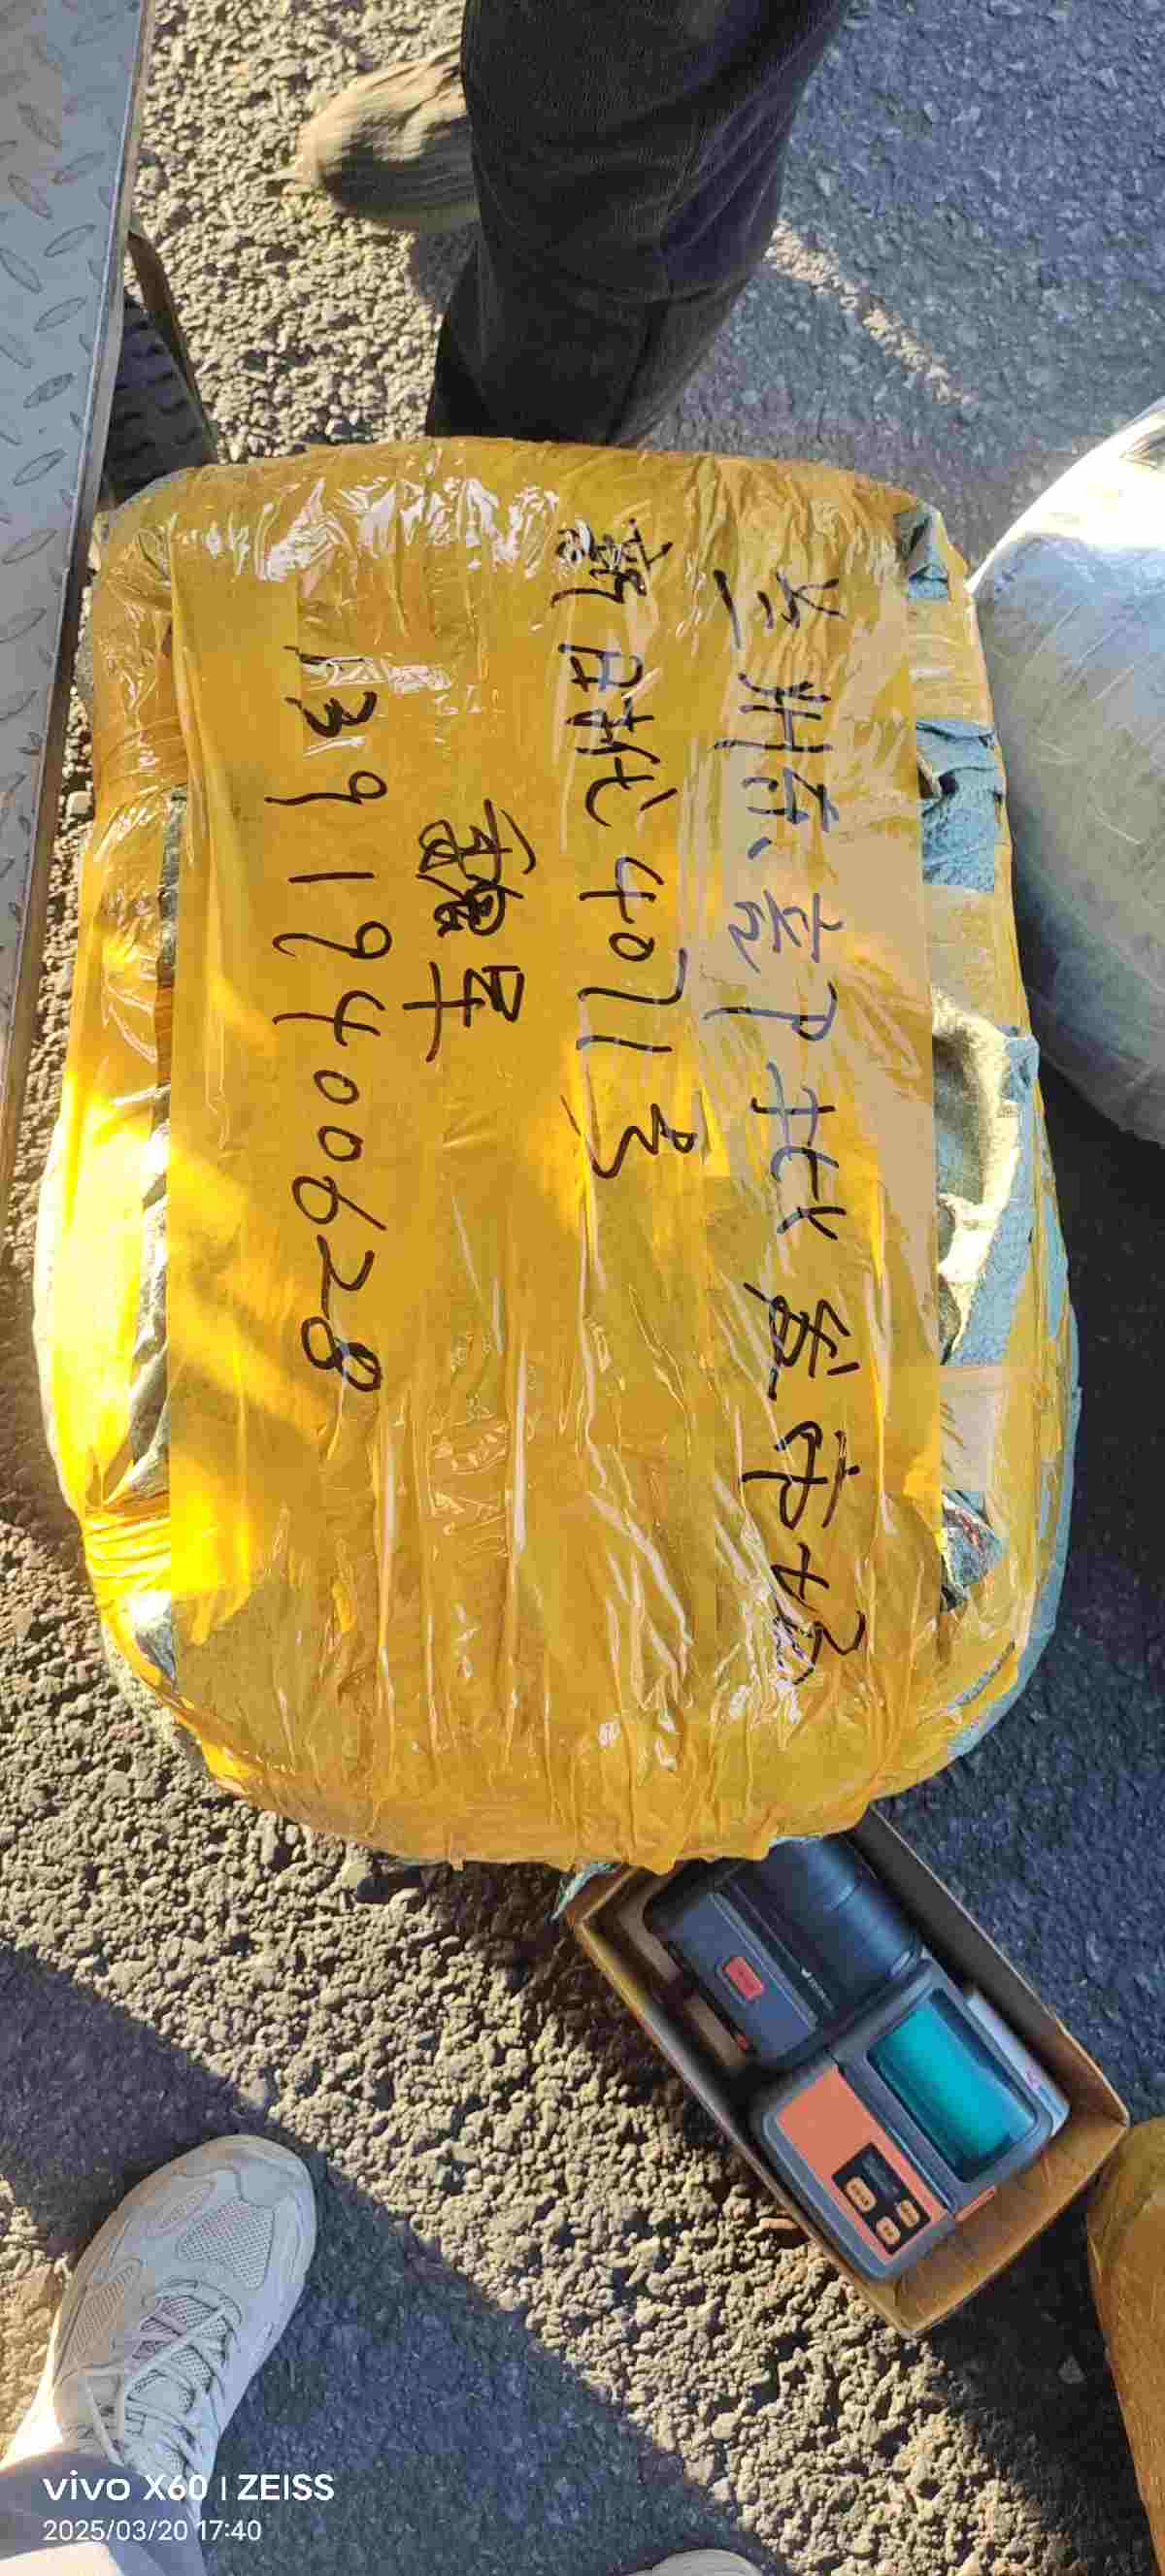 兰州东部批发市场
新时代4071号
魏
13919400628
vivo X60 | ZEISS
2025/03/20 17:40